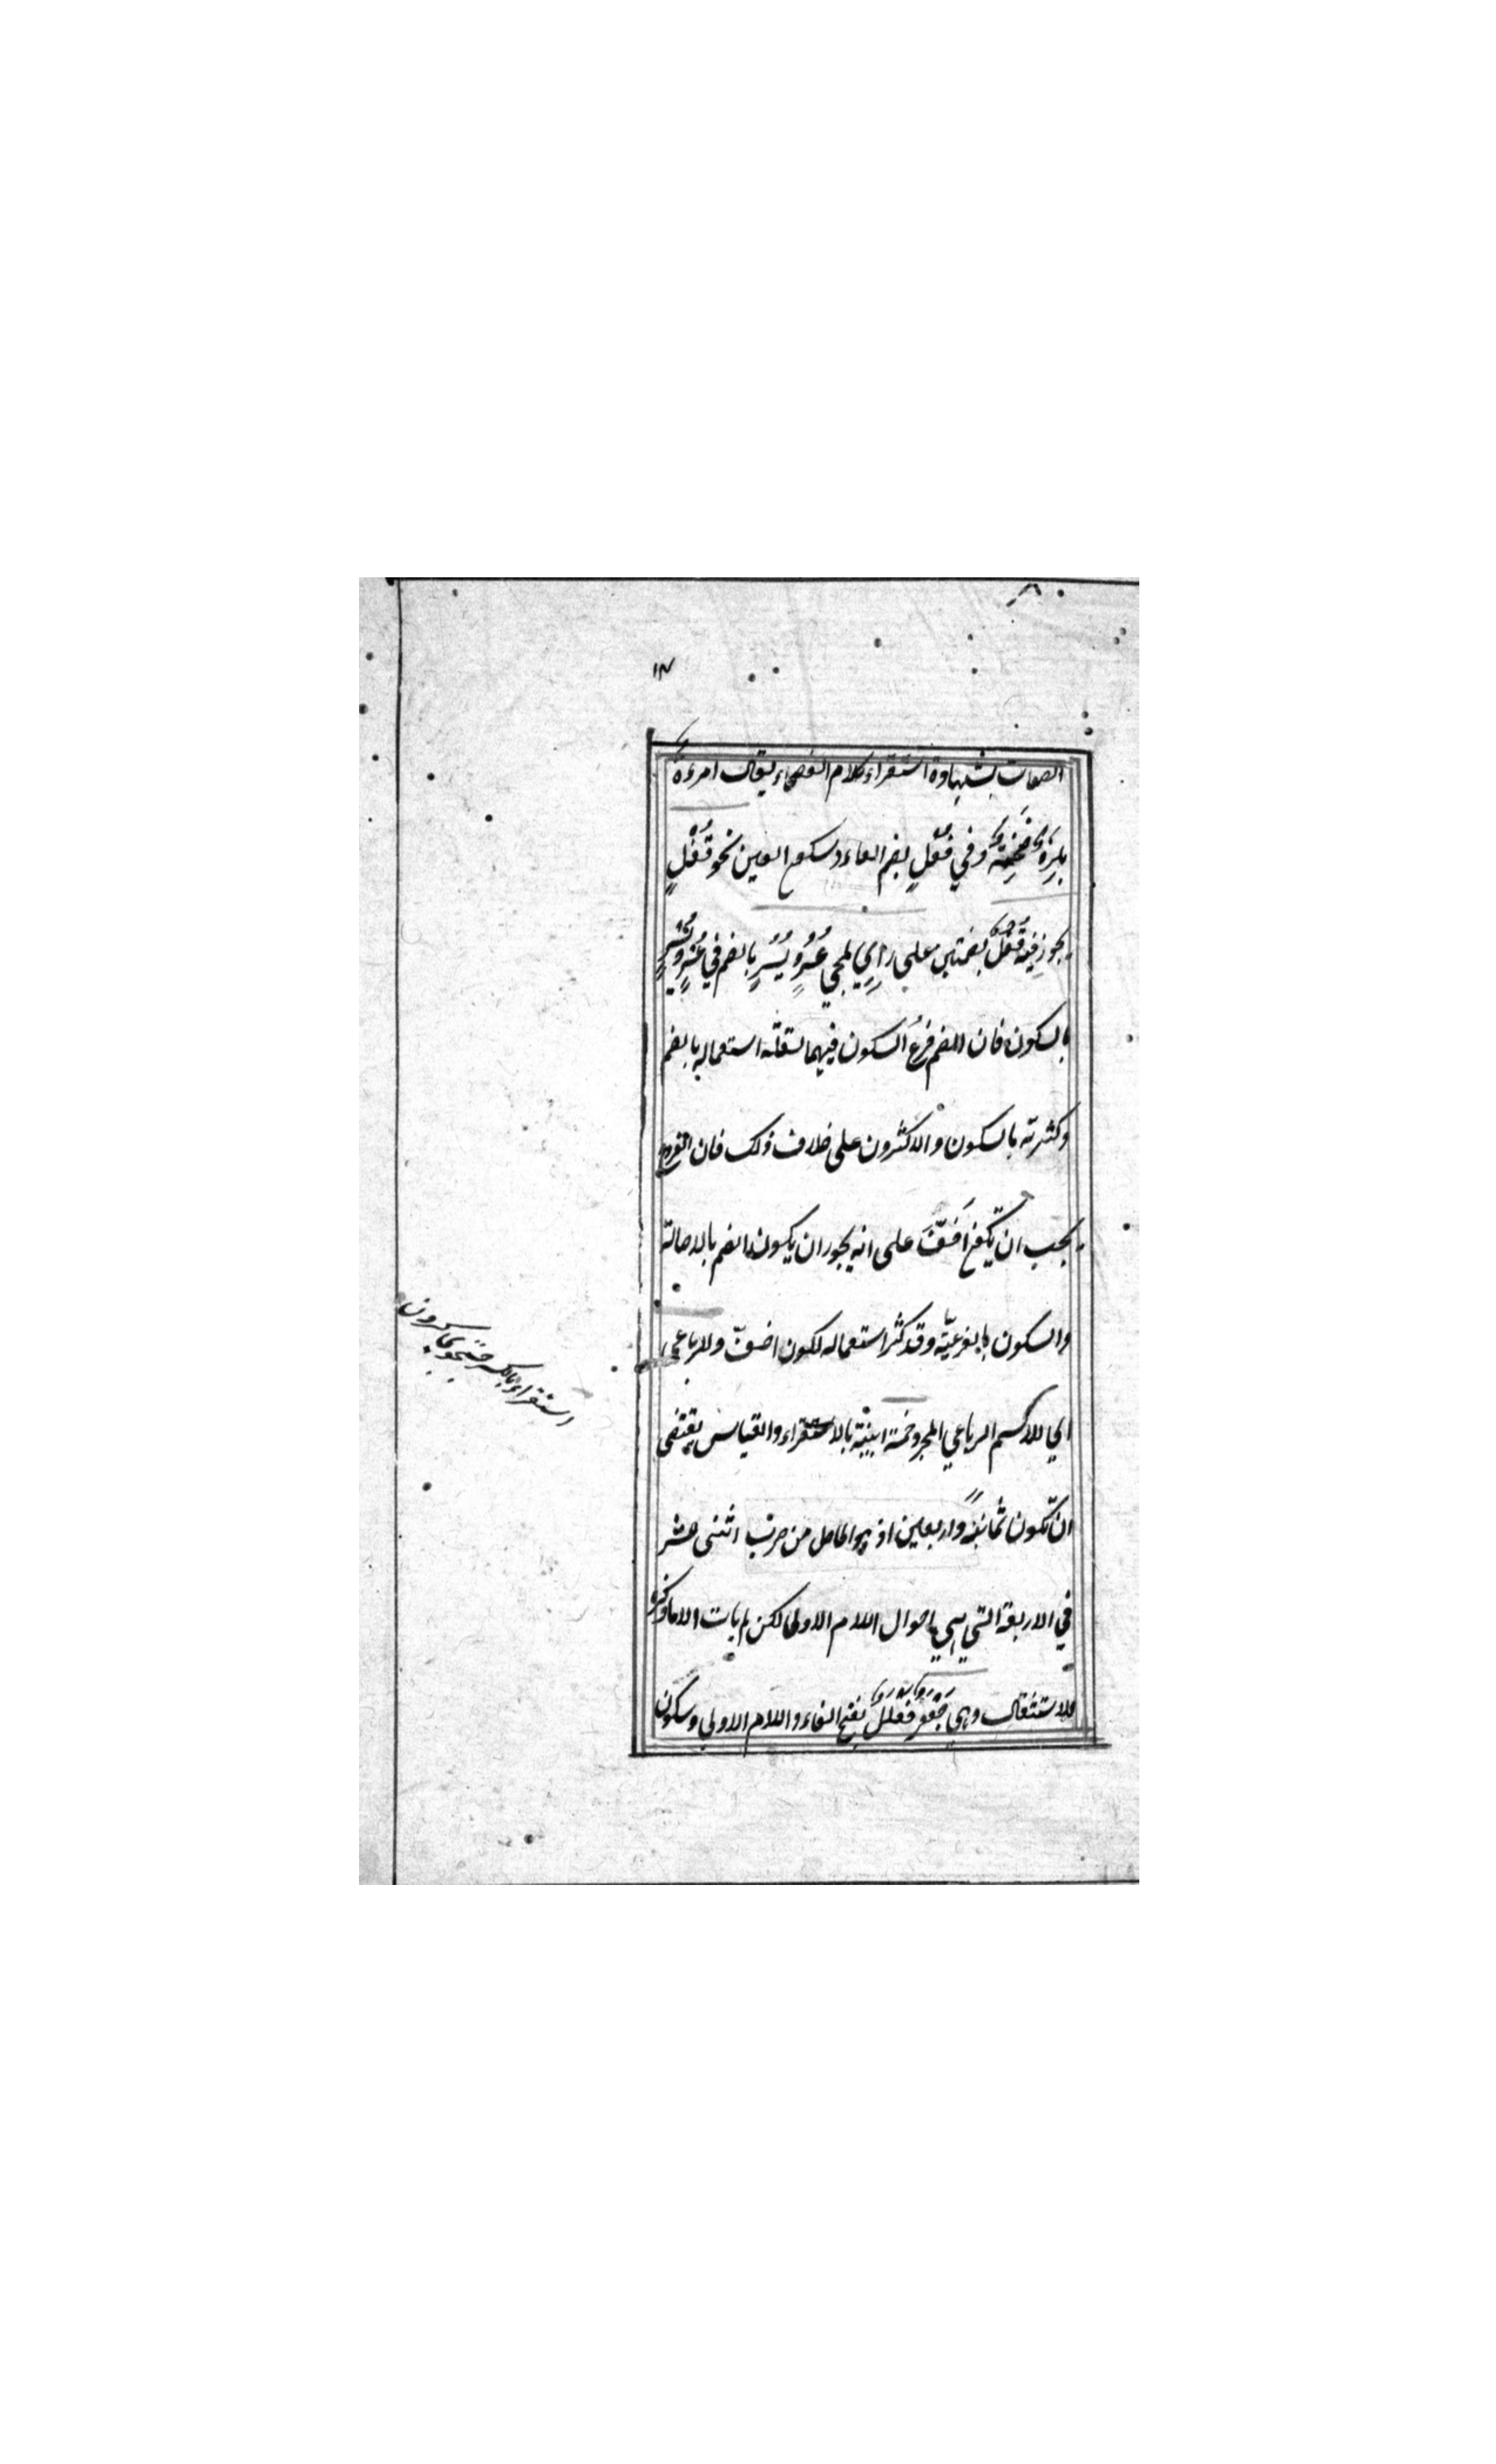 ١٧
الصفات بشهادة استقراء كلام الفصحاء يقال امرءة
بِلِزٌ ضخمة وفي فُعْلٍ بضم الفاء وسكون العين نحو قُفْلٍ
يجوز فيه قُفُلٌ بضمتين على رايٍ لمجي عُسُرٍ ويُسُرٍ بالضم في عُسْرٍ ويُسْرٍ
بالسكون فان الضم فرعُ السكون فيهما لقلّة استعماله بالضم
وكثرته بالسكون والاكثرون على خلاف ذلك فان الفرع
يجب ان يكون اَخفّ على انه يجوز ان يكون الضم بالاصالة
والسكون بالفرعيّة وقد كثر استعماله لكون اخفّ وللرباعي
اي للاسم الرباعي المجرد خمسة ابنية بالاستقراء والقياس يقتضي
ان تكون ثمانية واربعين اذ هو الحاصل من ضرب اثنى عشر
في الاربعة التي هي احوال اللام الاولى لكن لم يات الا ما ذكره
للاستثقال وهي جَعْفَرٌ فَعْلَلٌ بفتح الفاء واللام الاولي وسكون
استقراء بالكسر جستجو كردن